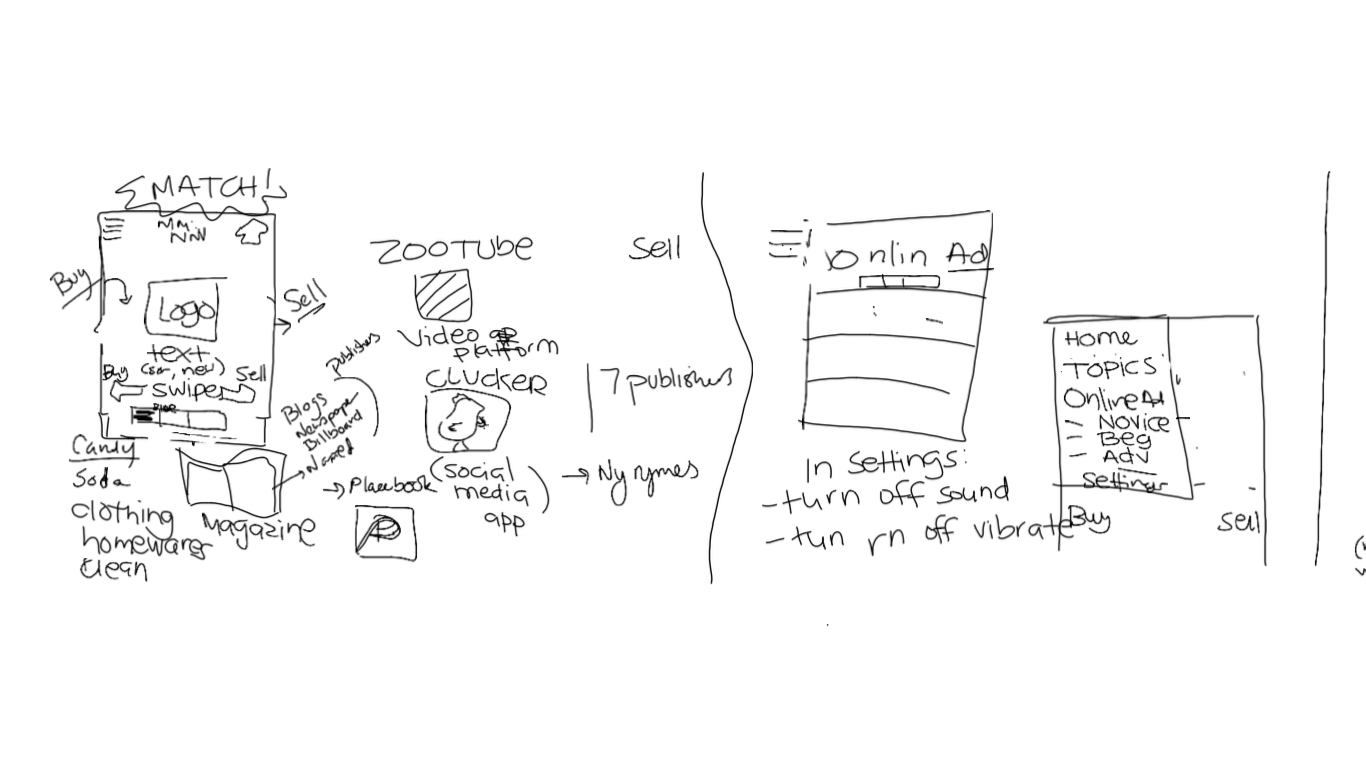 MATCH!
Buy
Logo
Sell
text
Buy
Sell
SWIPE
Candy
Soda
clothing
homewares
clean
Magazine
publishers
Blogs
Newspaper
Billboard
Named
ZOOTUBE
Video
platform
CLUCKER
(social
media
app)
P
Sell
7 publishers
Ny rymes
Onlin Ad
In Settings:
- turn off sound
- tun rn off vibrate
Home
TOPICS
Online Ad
- Novice
- Beg
- Adv
Settings
Buy
Sell